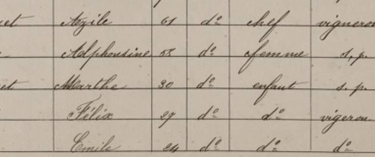 Azile 61 d° chef vigneron
Alphonsine 58 d° femme s. p.
Marthe 30 d° enfant s. p.
Félix 29 d° d° vigneron
Emile 24 d° d° d°